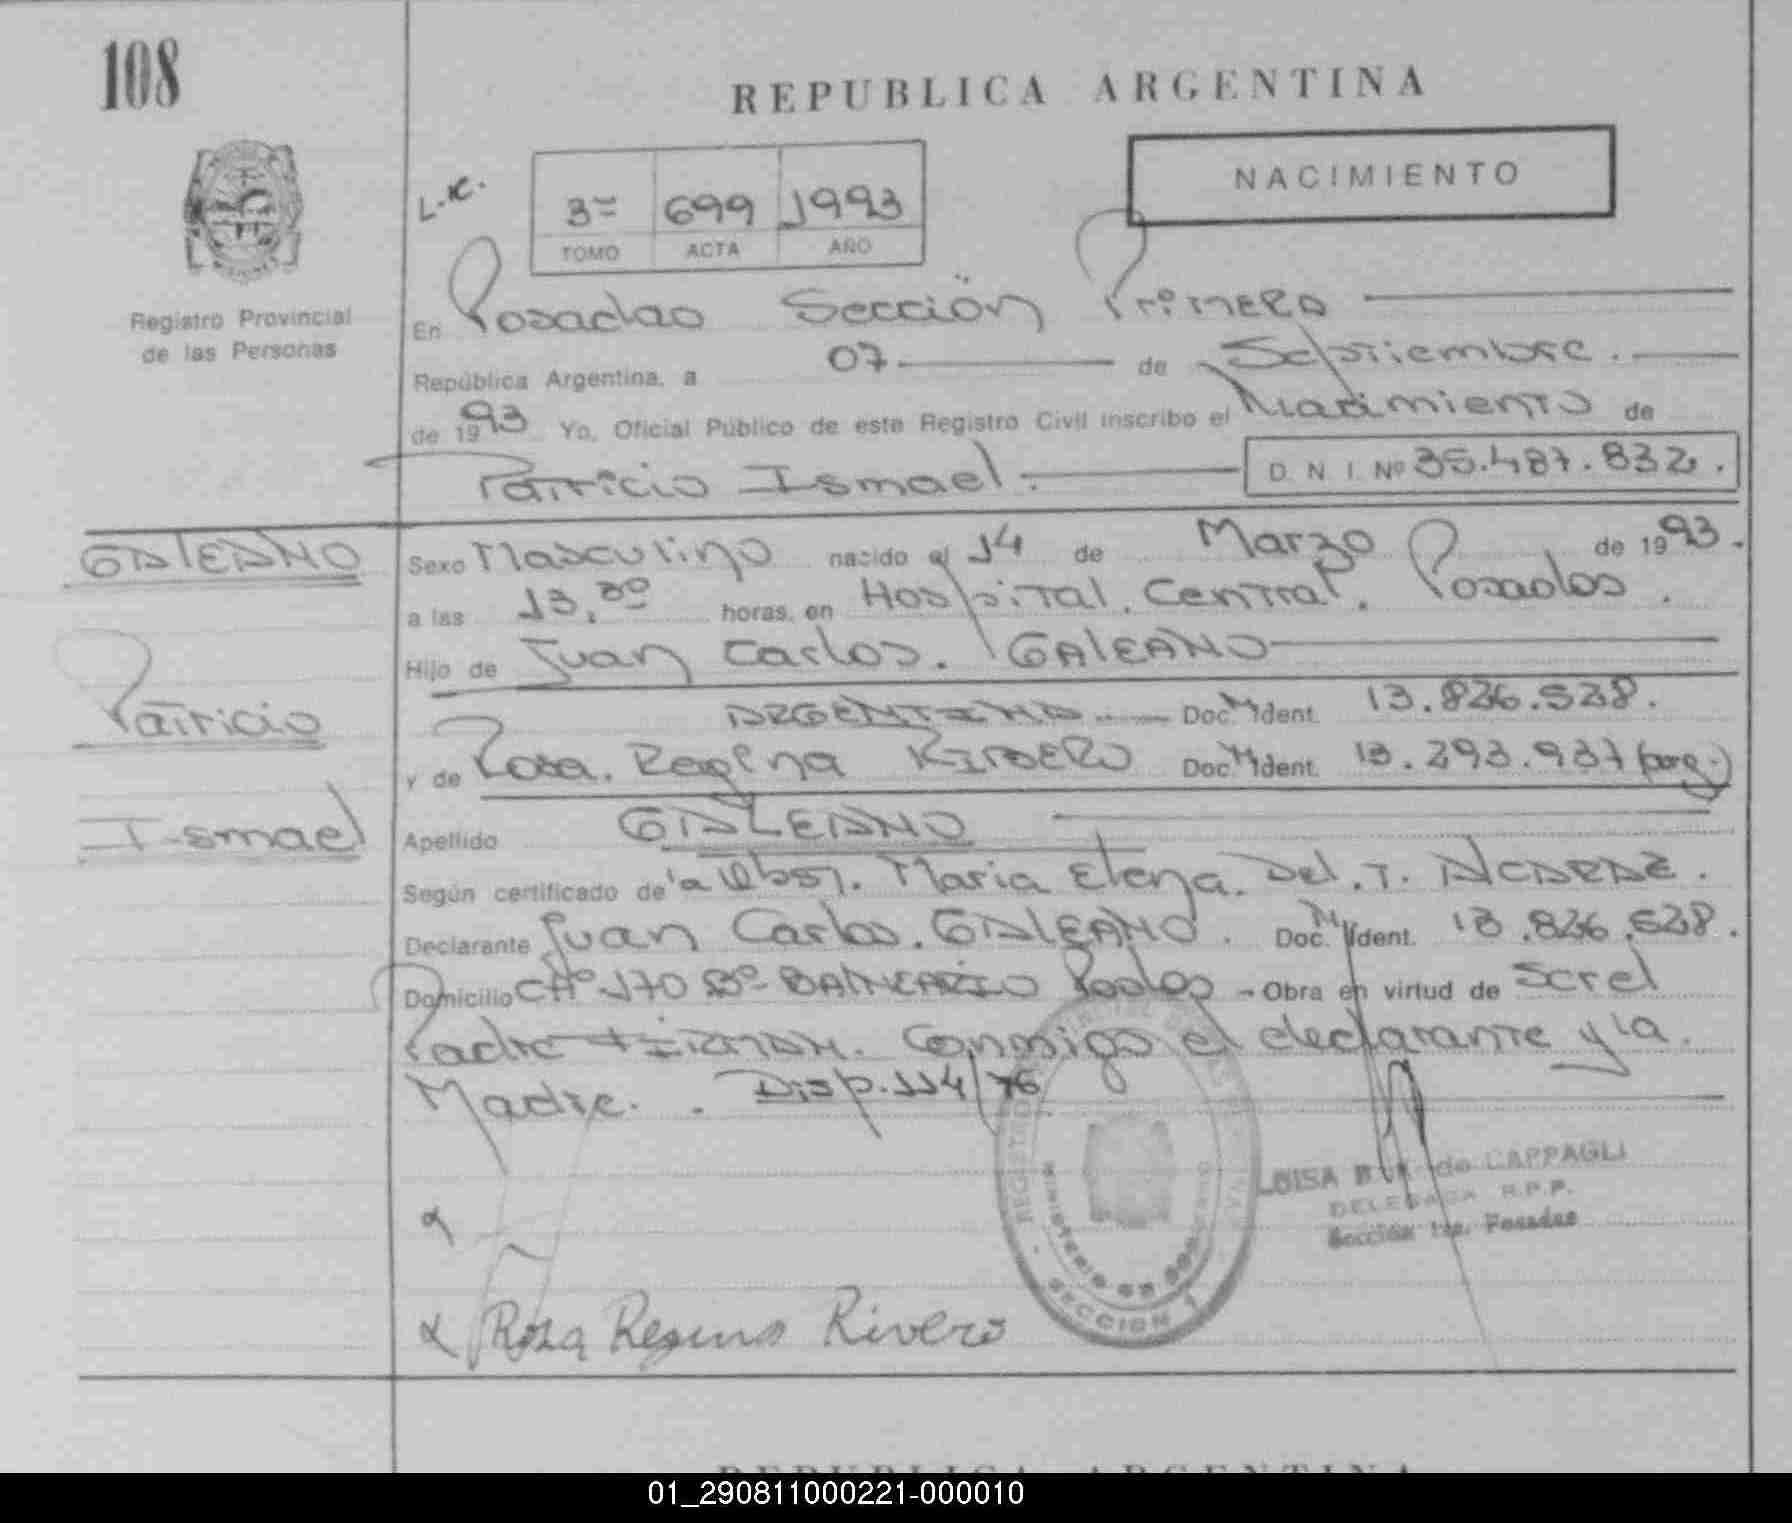 108
REPUBLICA ARGENTINA
NACIMIENTO
3º 699 1993
TOMO ACTA AÑO
Registro Provincial
de las Personas
En Posadas Sección Primera
República Argentina, a 07 de Septiembre.
de 1993 Yo, Oficial Público de este Registro Civil inscribo el Nacimiento de
Patricio Ismael. D. N. I. Nº 35.487.832.
GALEANO
Patricio
Ismael
Sexo Masculino nacido el 14 de Marzo de 1993.
a las 13,30 horas, en Hospital. Central. Posadas.
Hijo de Juan Carlos. GALEANO
ARGENTINO Doc. M Ident. 13.826.528.
y de Rosa. Regina Doc. M Ident. 13.293.937 (arg.)
Apellido GALEANO
Según certificado de la Obst. Maria Elena. Del. T. ALCARAZ.
Declarante Juan Carlos. GALEANO. Doc. M Ident. 13.826.528.
Domicilio CHº 170 Bº BALNEARIO - Obra en virtud de
Padre FIRMAN. Conmigo el declarante y la
Madre. Disp. 114/76
SECCION 1
de CAPPAGLI
DELEGADA R.P.P.
Sección 1ra. Posadas
Rosa Regina Rivero
REPUBLICA ARGENTINA
01_290811000221-000010